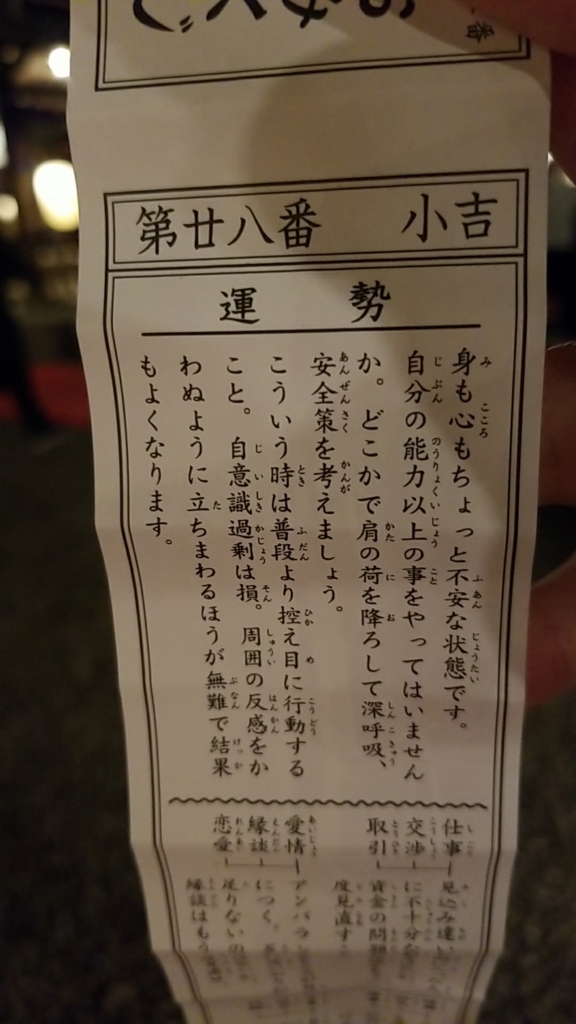 第廿八番 小吉
運勢
身も心もちょっと不安な状態です。
自分の能力以上の事をやってはいません
か。どこかで肩の荷を降ろして深呼吸、
安全策を考えましょう。
こういう時は普段より控え目に行動する
こと。自意識過剰は損。周囲の反感をか
わぬように立ちまわるほうが無難で結果
もよくなります。
仕事
交渉
取引
見込み違い
に不十分な
資金の問題
度見直す
愛情
縁談
恋愛
アンバラン
につく。
足りないの
縁談はもう